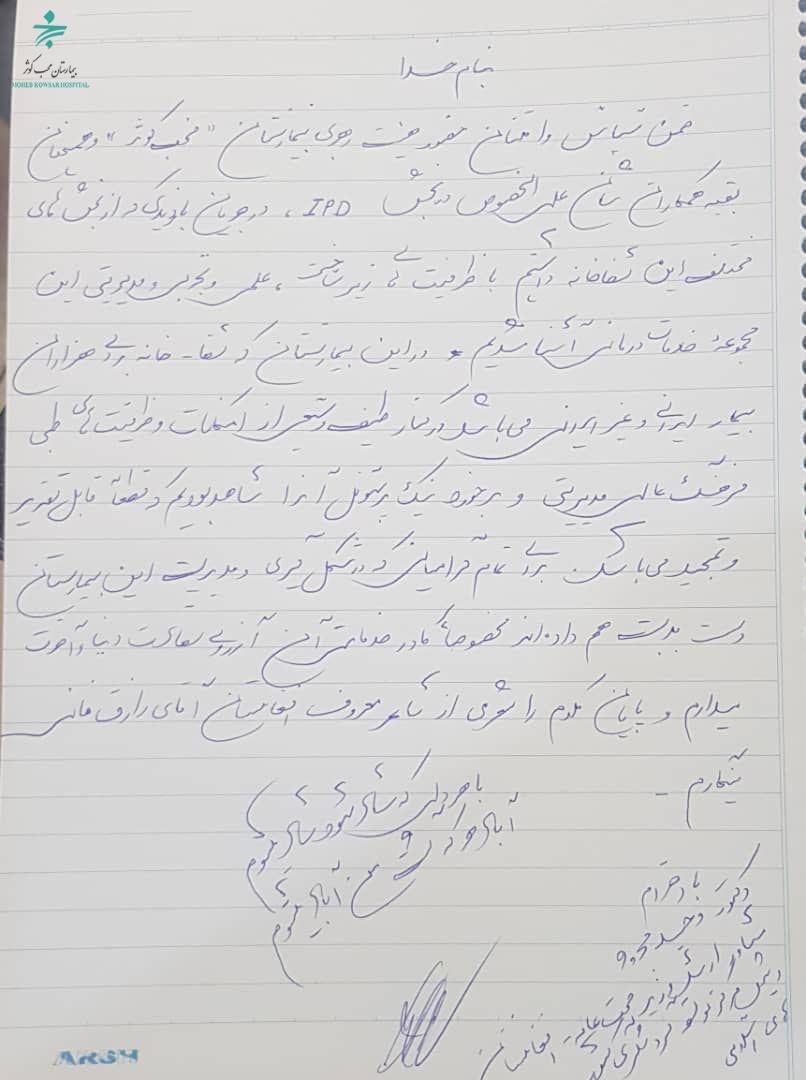 بیمارستان محب کوثر
MOHEB KOWSAR HOSPITAL
بنام خدا
ضمن سپاس و امتنان حضور مدیریت بیمارستان "محب کوثر" و همچنان
بقیه همکاران شان علی الخصوص در بخش IPD، در جریان بازدیدی که از بخش های
مختلف این شفاخانه داشتیم با ظرفیت های زیرساخت، علمی و تجربی و مدیریتی این
مجموعۀ خدمات درمانی آشنا شدیم. در این بیمارستان که شفا-خانه برای هزاران
بیمار ایرانی و غیر ایرانی می باشد در کنار طیف وسیعی از امکانات و ظرفیت های طبی
فرهنگ عالی مدیریتی و برخورد نیک پرسونل آنرا شاهد بودیم که قطعاً قابل تقدیر
و تمجید می باشد. برای تمام کسانی که در شکل گیری و مدیریت این بیمارستان
دست بدست هم داده اند مخصوصاً کادر خدماتی آن آرزوی سعادت دنیا و آخرت
میدارم و پایان کلام را شعری از شاعر معروف افغانستان آقای رازق فانی
مینگارم -
با هر دلی که شاد شود شاد میشوم
آباد هر که گشت من آباد میشوم
با احترام
دکتور وحید
افغانستان
ARSH